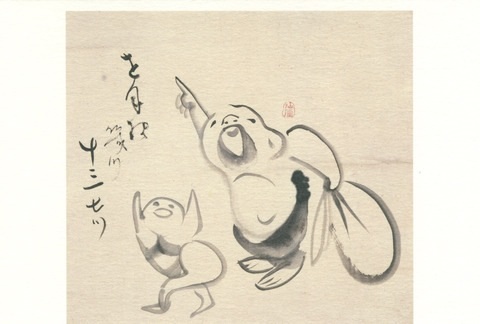 を月様
幾つ
十三七つ